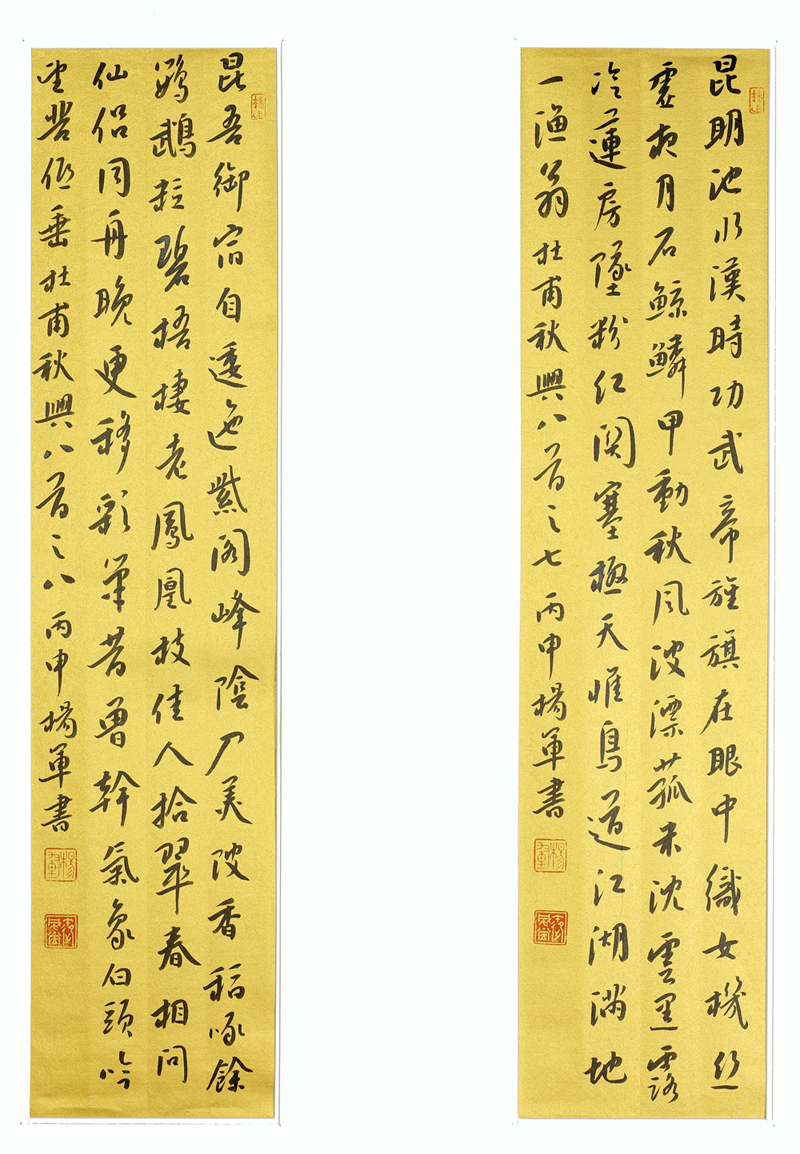 昆明池水漢時功武帝旌旗在眼中織女機絲
虛夜月石鯨鱗甲動秋風波漂菰米沈雲黑露
冷蓮房墜粉紅關塞極天惟鳥道江湖滿地
一漁翁杜甫秋興八首之七丙申楊軍書
昆吾御宿自逶迤紫閣峰陰入美陂香稻啄餘
鸚鵡粒碧梧棲老鳳凰枝佳人拾翠春相問
仙侶同舟晚更移彩筆昔曾幹氣象白頭吟
望苦低垂杜甫秋興八首之八丙申楊軍書